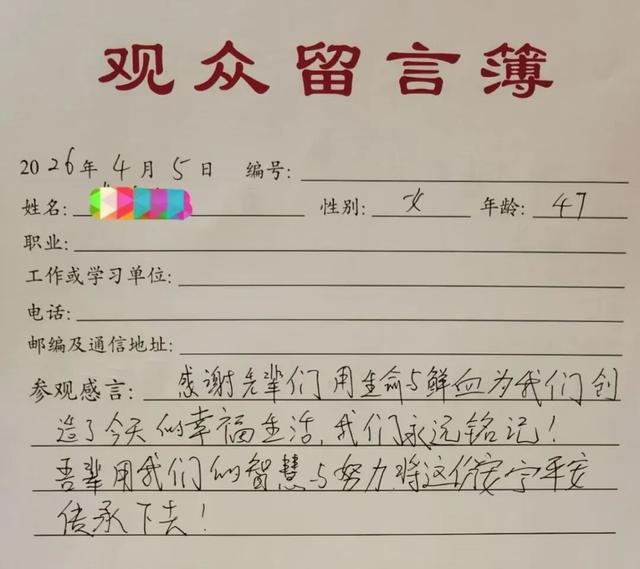 观众留言簿
2026年4月5日 编号:
姓名: 性别: 女 年龄: 47
职业:
工作或学习单位:
电话:
邮编及通信地址:
参观感言: 感谢先辈们用生命与鲜血为我们创
造了今天的幸福生活,我们永远铭记!
吾辈用我们的智慧与努力将这份安宁平安
传承下去!